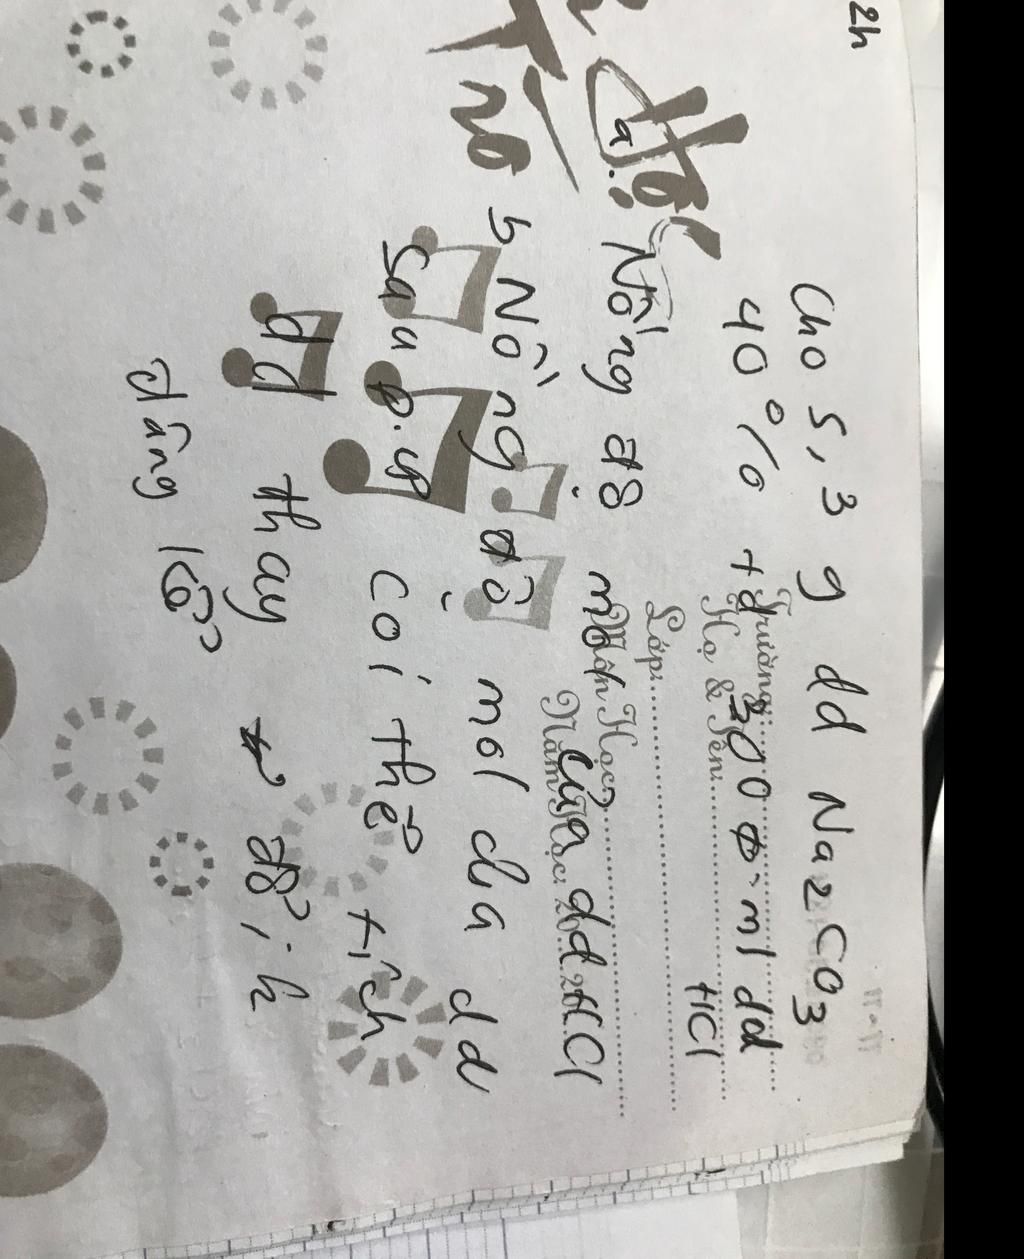 2h
Cho 5,3 g dd Na2CO3
40% td 300 ml dd
HCl
Trường:
Họ & Tên:
Lớp:
Môn Học:
Năm Học: 20 20
a: Nồng độ mol của dd HCl
b Nồng độ mol của dd
sau p.ư có thể tích
dd thay đổi; k
đáng kể